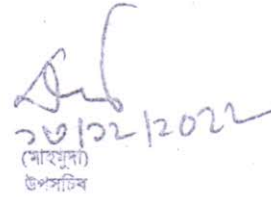 ১৩/১২/২০২২
(মাহমুদা)
উপসচিব